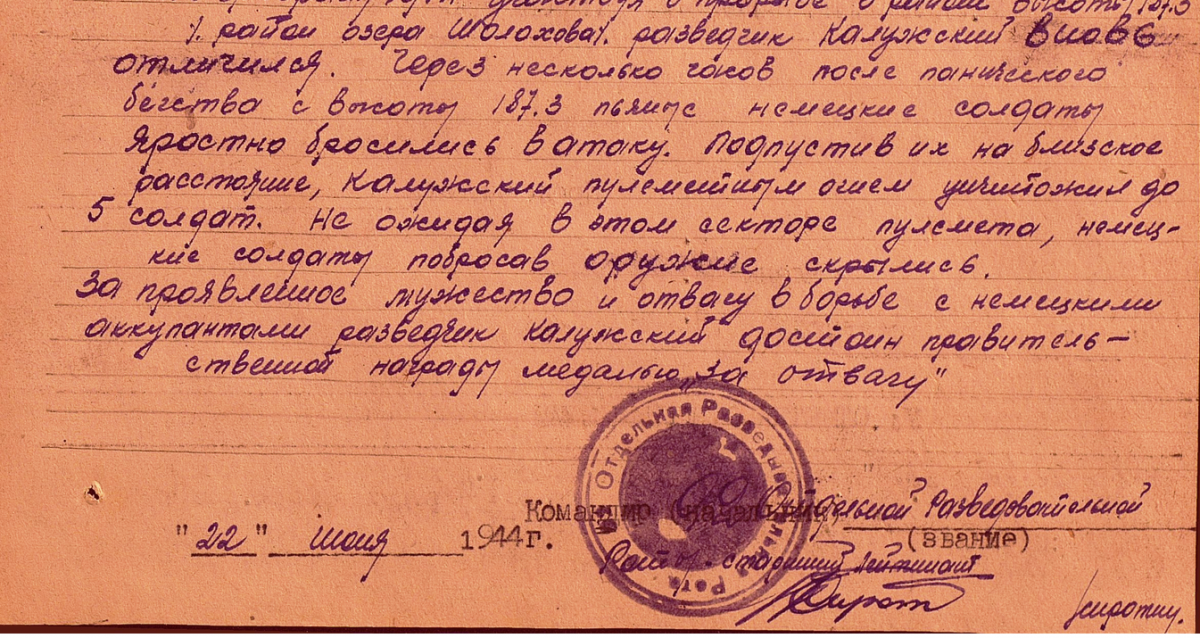 участвуя в прорыве в районе высоты 187.3
/. район озера Шолохова/. разведчик Калужский вновь
отличился. Через несколько часов после панического
бегства с высоты 187.3 пьяные немецкие солдаты
яростно бросились в атаку. Подпустив их на близкое
расстояние, Калужский пулеметным огнем уничтожил до
5 солдат. Не ожидая в этом секторе пулемета, немец-
кие солдаты побросав оружие скрылись.
За проявленное мужество и отвагу в борьбе с немецкими
аккупантами разведчик Калужский достоин правитель-
ственной награды медалью „За отвагу"
Отдельная Разведывательная Рота
Командир (начальник) Отдельной Разведовательной
"22" июня 1944г.
(звание)
Роты старший лейтенант
/сиротин.